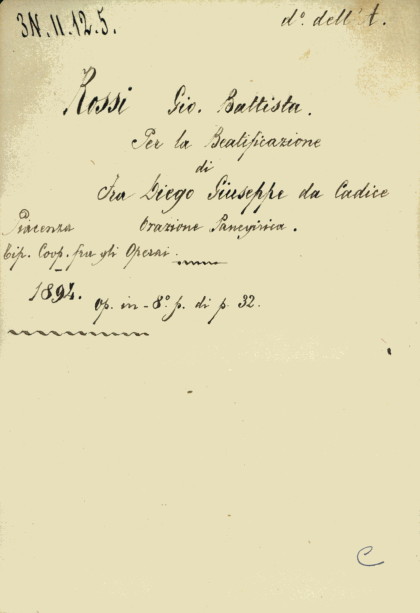 3N.II.12.5.
d.º dell'A.
Rossi Gio. Battista.
Per la Beatificazione
di
Fra Diego Giuseppe da Cadice
Orazione Panegirica.
Piacenza
Tip. Coop. fra gli Operai.
1894. op. in-8.º p. di p. 32.
C